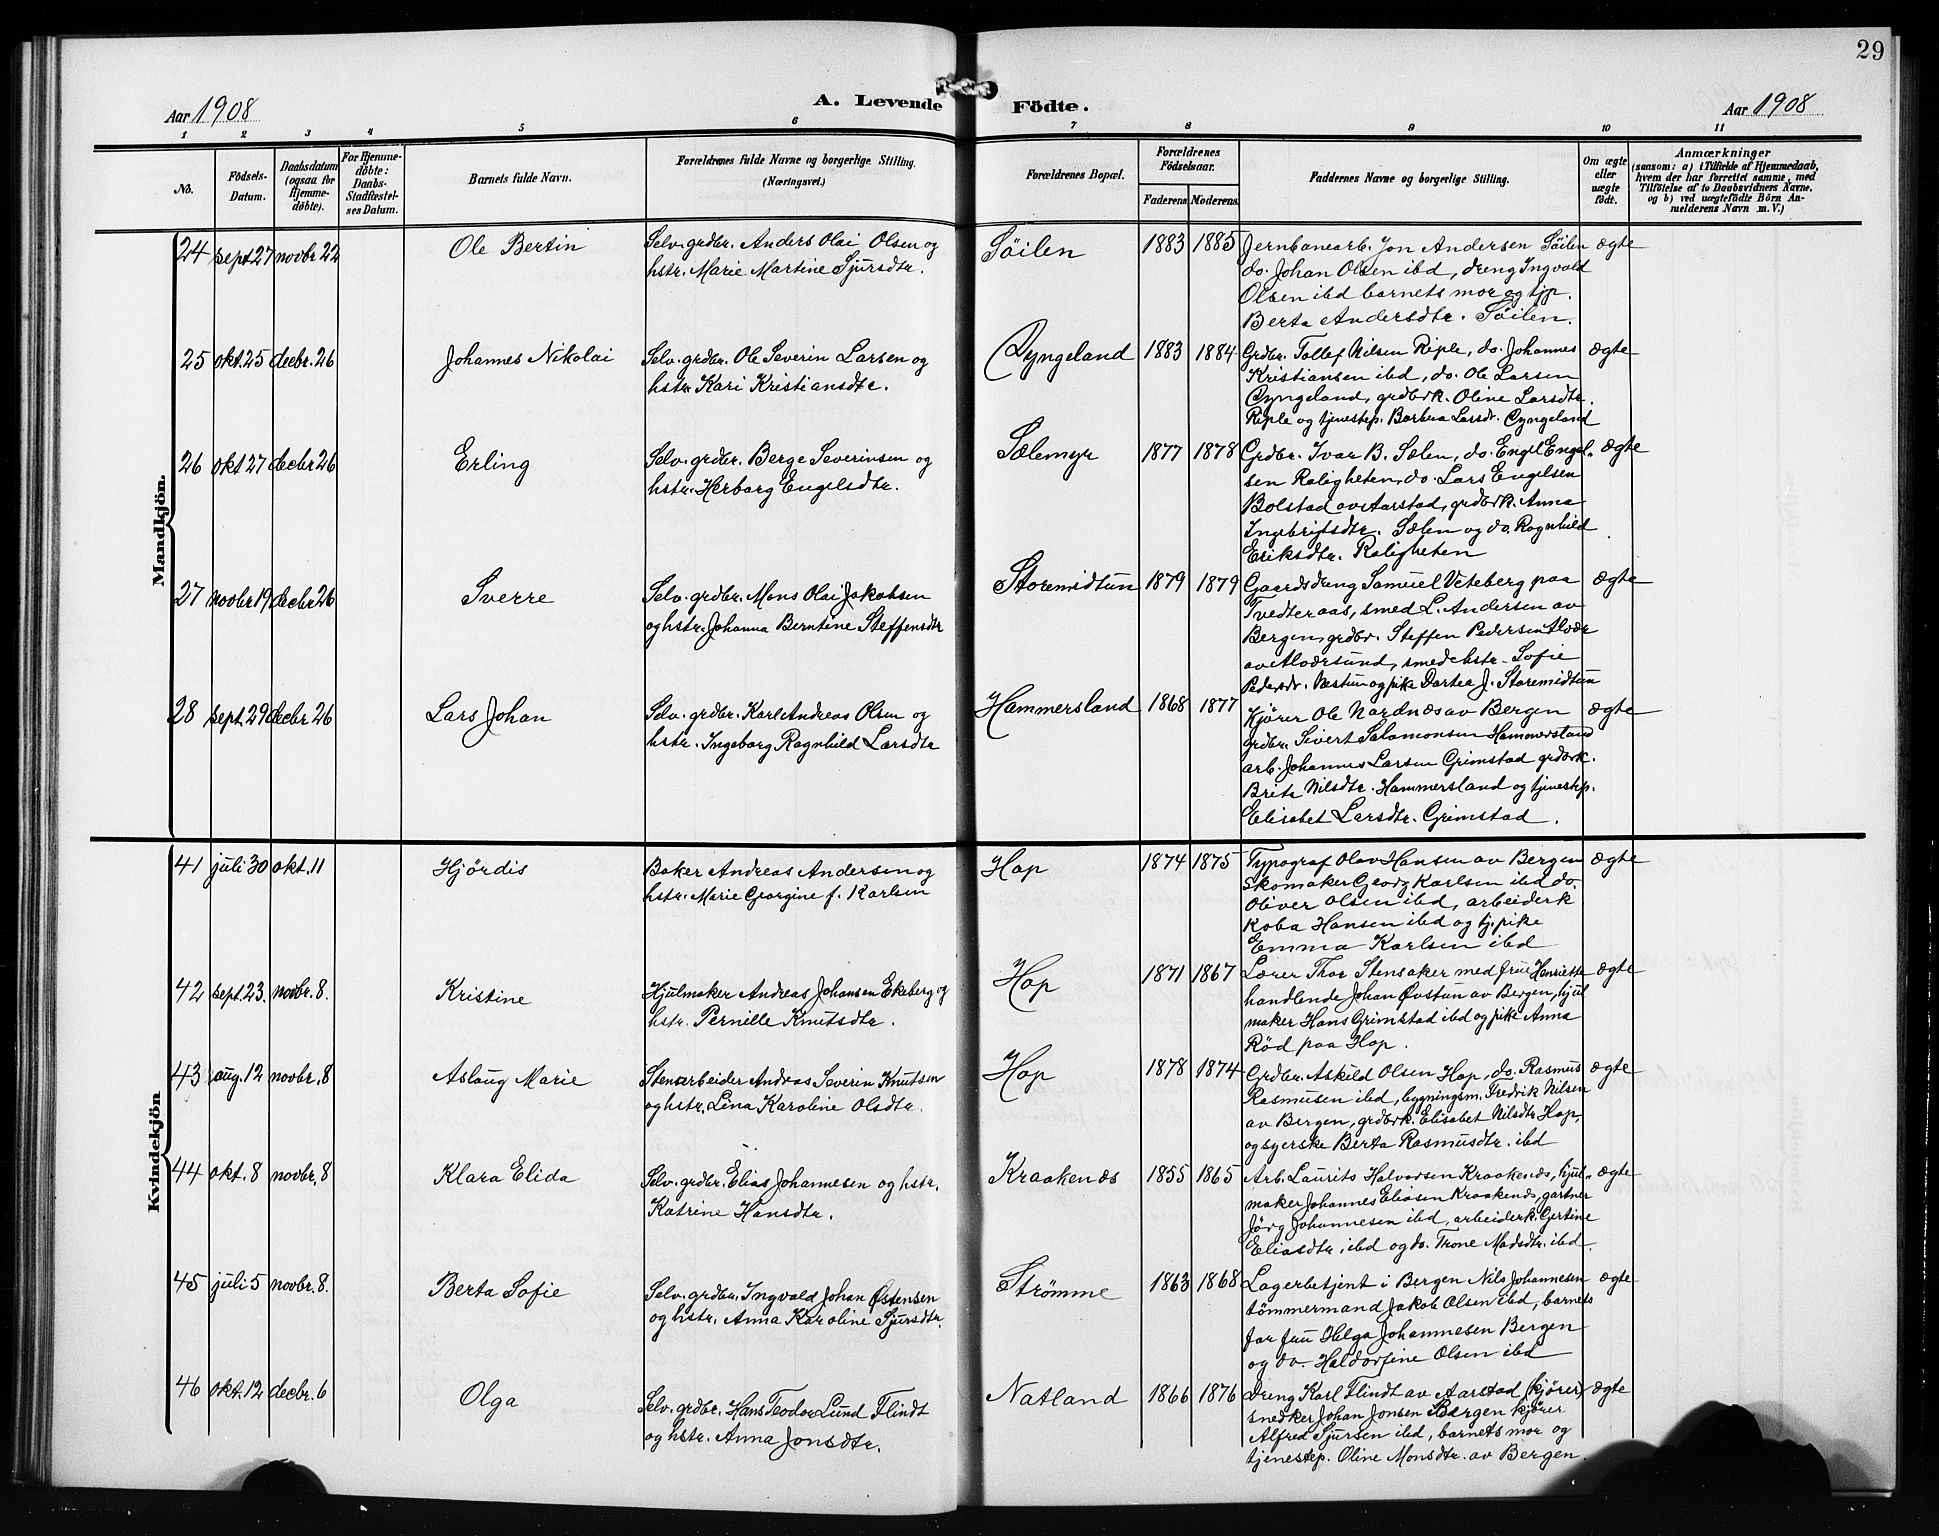 29
Aar 1908
A. Levende
Födte.
Aar 1908
1 2 3 4 5 6 7 8 9 10 11
No.
Födsels-
Datum.
Daabsdatum
(ogsaa for
Hjemme-
döbte).
For Hjemme-
döbte:
Daabs-
Stadfæstel-
ses Datum.
Barnets fulde Navn.
Forældrenes fulde Navne og borgerlige Stilling.
(Næringsvei.)
Forældrenes Bopæl.
Forældrenes
Födselsaar.
Faderens. Moderens.
Faddernes Navne og borgerlige Stilling.
Om ægte
eller
uægte
födt.
Anmærkninger
(saasom: a) i Tilfælde af Hjemmedaab,
hvem der har forrettet samme, med
Tilföielse af to Daabsvidners Navne,
og b) ved uægtefödte Börn An-
melderens Navn m. V.)
Mandkjön.
24 sept 27 novbr 22 Ole Bertin
Selv. grdbr. Anders Olai Olsen og
hstr. Marie Martine Sjursdtr.
Söilen 1883 1885
Jernbanearb. Jon Andersen Söilen
do. Johan Olsen ibd, dreng Ingvald
Olsen ibd barnets mor og tjp.
Berta Andersdtr. Söilen.
ægte
25 okt. 25 decbr. 26 Johannes Nikolai
Selv. grdbr. Ole Severin Larsen og
hstr. Kari Kristiansdtr.
Øyngeland 1883 1884
Grdbr. Tollef Nilsen Riple, do. Johannes
Kristiansen ibd, do. Ole Larsen
Øyngeland, grdbrk. Oline Larsdtr.
Riple og tjenestep. Barbra Larsdr. Øyngeland
ægte
26 okt 27 decbr 26 Erling
Selv. grdbr. Berge Severinsen og
hstr. Herborg Engelsdtr.
Sælemyr 1877 1878
Grdbr. Ivar B. Sælen, do. Engel Engel-
sen Roligheten, do. Lars Engelsen
Bolstad av Aarstad, grdbrk. Anna
Ingebrigtsdtr. Sælen og do. Ragnhild
Eriksdtr. Roligheten
ægte
27 novbr 19 decbr 26 Sverre
Selv. grdbr. Mons Olai Jakobsen
og hstr. Johanna Berntine Steffensdtr
Storemidtun 1879 1879
Gaardsdreng Samuel Veteberg paa
Tvedteraas, smed L. Andersen av
Bergen, grdbr. Steffen Pedersen Alvær
av Alværsund, smedehstr. Sofie
Pedersdr. Næstun og pike Dortea J. Storemidtun
ægte
28 sept. 29 decbr 26 Lars Johan
Selv. grdbr. Karl Andreas Olsen og
hstr. Ingeborg Ragnhild Larsdtr
Hammersland 1868 1877
Kjører Ole Nordnæs av Bergen
grdbr. Sivert Salamonsen Hammersland
arb. Johannes Larsen Grimstad grdbrk.
Brita Nilsdtr. Hammersland og tjenestep.
Elisabet Larsdtr. Grimstad.
ægte
Kvindekjön
41 juli 30 okt. 11 Hjørdis
Baker Andreas Andersen og
hstr. Marie Georgine f. Karlsen
Hop 1874 1875
Typograf Olav Hansen av Bergen
Skomaker Georg Karlsen ibd do.
Oliver Olsen ibd, arbeiderk
Koba Hansen ibd og tj. pike
Emma Karlsen ibd
ægte
42 sept. 23. novbr. 8. Kristine
Hjulmaker Andreas Johansen Ekeberg og
hstr. Pernille Knutsdtr.
Hop 1871 1867
Lærer Thor Stensaker med frue Henriette
handlende Johan Øvstun av Bergen, hjul
maker Hans Grimstad ibd og pike Anna
Rød paa Hop.
ægte
43 aug. 12 novbr. 8 Aslaug Marie
Stenarbeider Andreas Severin Knutsen
og hstr. Lina Karoline Olsdtr.
Hop 1878 1874
Grdbr. Askild Olsen Hop, do. Rasmus
Rasmusen ibd, bygningsm. Fredrik Nilsen
av Bergen, grdbrk. Elisabet Nilsdtr Hop,
og syerske Berta Rasmusdtr. ibd
ægte
44 okt. 8 novbr. 8 Klara Elida
Selv. grdbr. Elias Johannesen og hstr.
Katrine Hansdtr.
Kraakenæs 1855 1865
Arb. Laurits Halvorsen Kraakenæs, hjul-
maker Johannes Eliasen Kraakenæs, gartner
Jörg Johannesen ibd, arbeiderk. Gertine
Eliasdtr. ibd og do. Trone Madsdtr. ibd.
ægte
45 juli 5 novbr. 8. Berta Sofie
Selv. grdbr. Ingvald Johan Østensen
og hstr. Anna Karoline Sjursdtr.
Strømme 1863 1868
Lagerbetjent i Bergen Nils Johannesen
tömmermand Jakob Olsen ibd, barnets
far fru Helga Johannesen Bergen
og do. Haldorfine Olsen ibd
ægte
46 okt. 12 decbr. 6 Olga
Selv. grdbr. Hans Teodor Lund Flindt
og hstr. Anna Jonsdtr.
Natland 1866 1876
Dreng Karl Flindt av Aarstad (kjører)
snedker Johan Jonsen Bergen kjører
Alfred Sjursen ibd, barnets mor og
tjenestep. Oline Monsdtr. av Bergen.
ægte